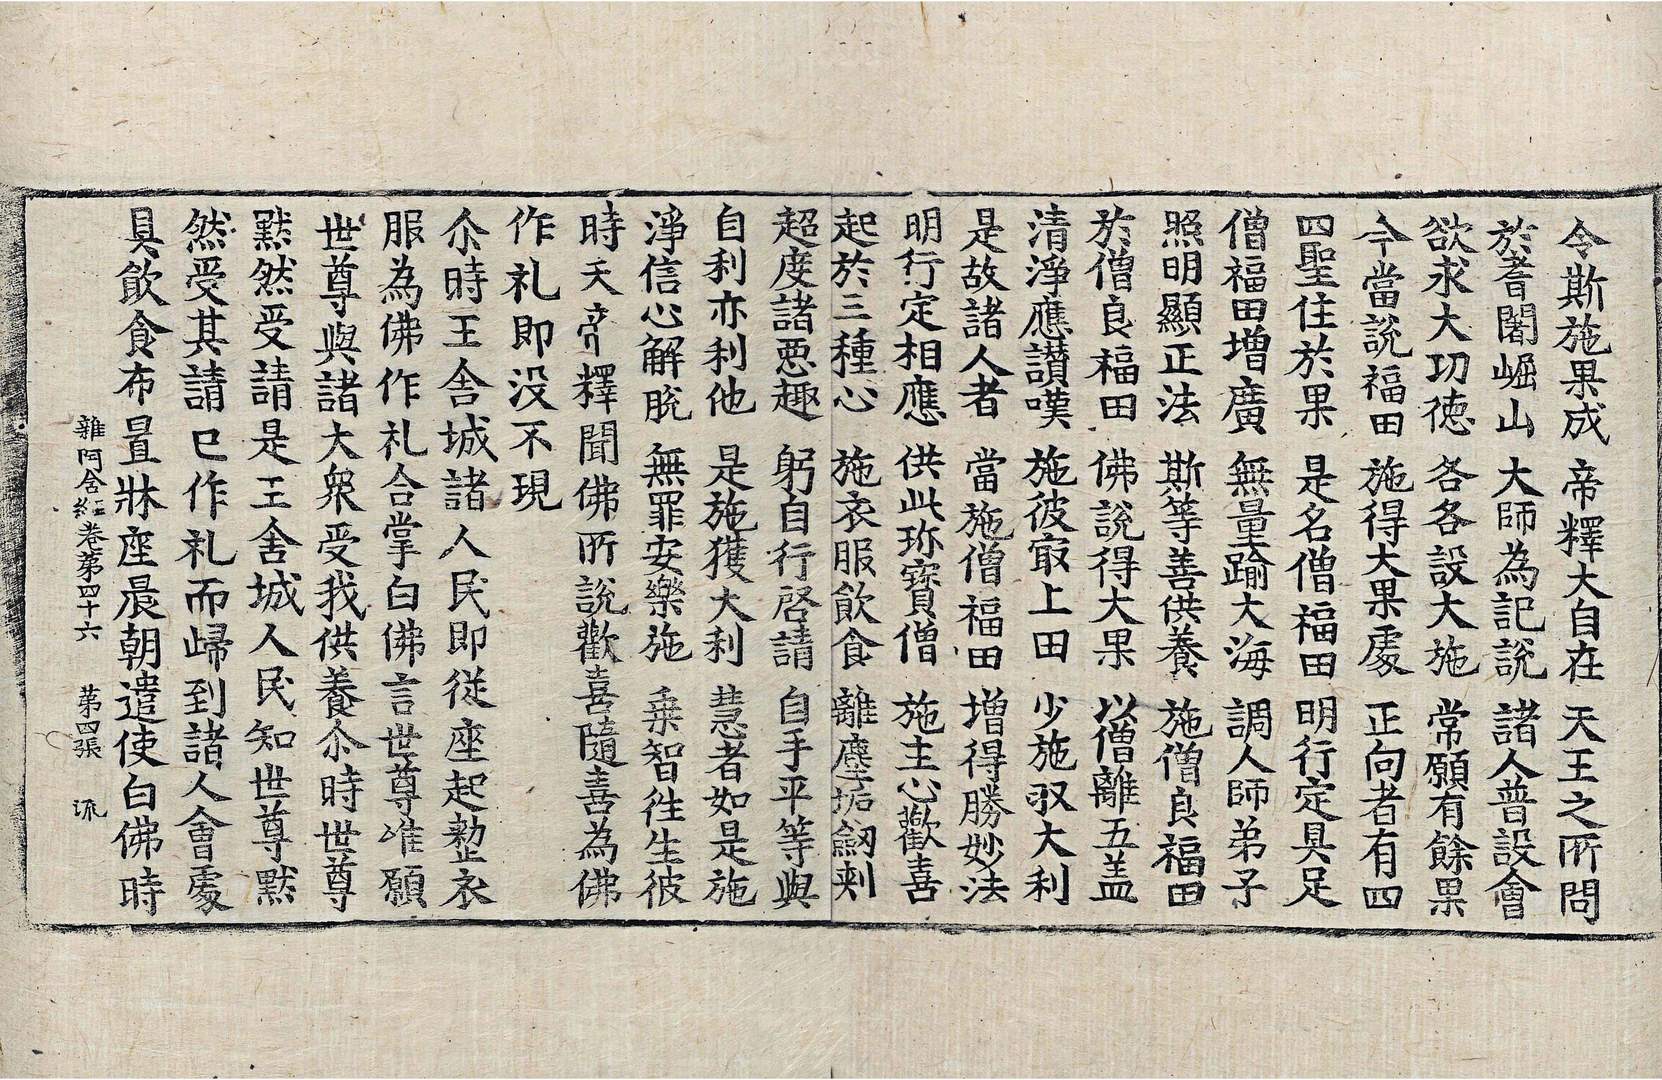 令斯施果成　帝釋大自在　天王之所問
於耆闍崛山　大師為記說　諸人普設會
欲求大功德　各各設大施　常願有餘果
今當說福田　施得大果處　正向者有四
四聖住於果　是名僧福田　明行定具足
僧福田增廣　無量踰大海　調人師弟子
照明顯正法　斯等善供養　施僧良福田
於僧良福田　佛說得大果　以僧離五盖
清淨應讃嘆　施彼㝡上田　少施収大利
是故諸人者　當施僧福田　增得勝妙法
明行定相應　供此珎寶僧　施主心歡喜
起於三種心　施衣服飲食　離塵垢劒刺
超度諸惡趣　躬自行啓請　自手平等與
自利亦利他　是施獲大利　慧者如是施
淨信心解脫　無罪安樂施　乗智徃生彼
時天帝釋聞佛所說歡喜隨喜為佛
作礼即没不現
尒時王舍城諸人民即從座起整衣
服為佛作礼合掌白佛言世尊唯願
世尊與諸大衆受我供養尒時世尊
黙然受請是王舍城人民知世尊黙
然受其請已作礼而歸到諸人會處
具飲食布置牀座晨朝遣使白佛時
雜阿含經卷第四十六　第四張　流